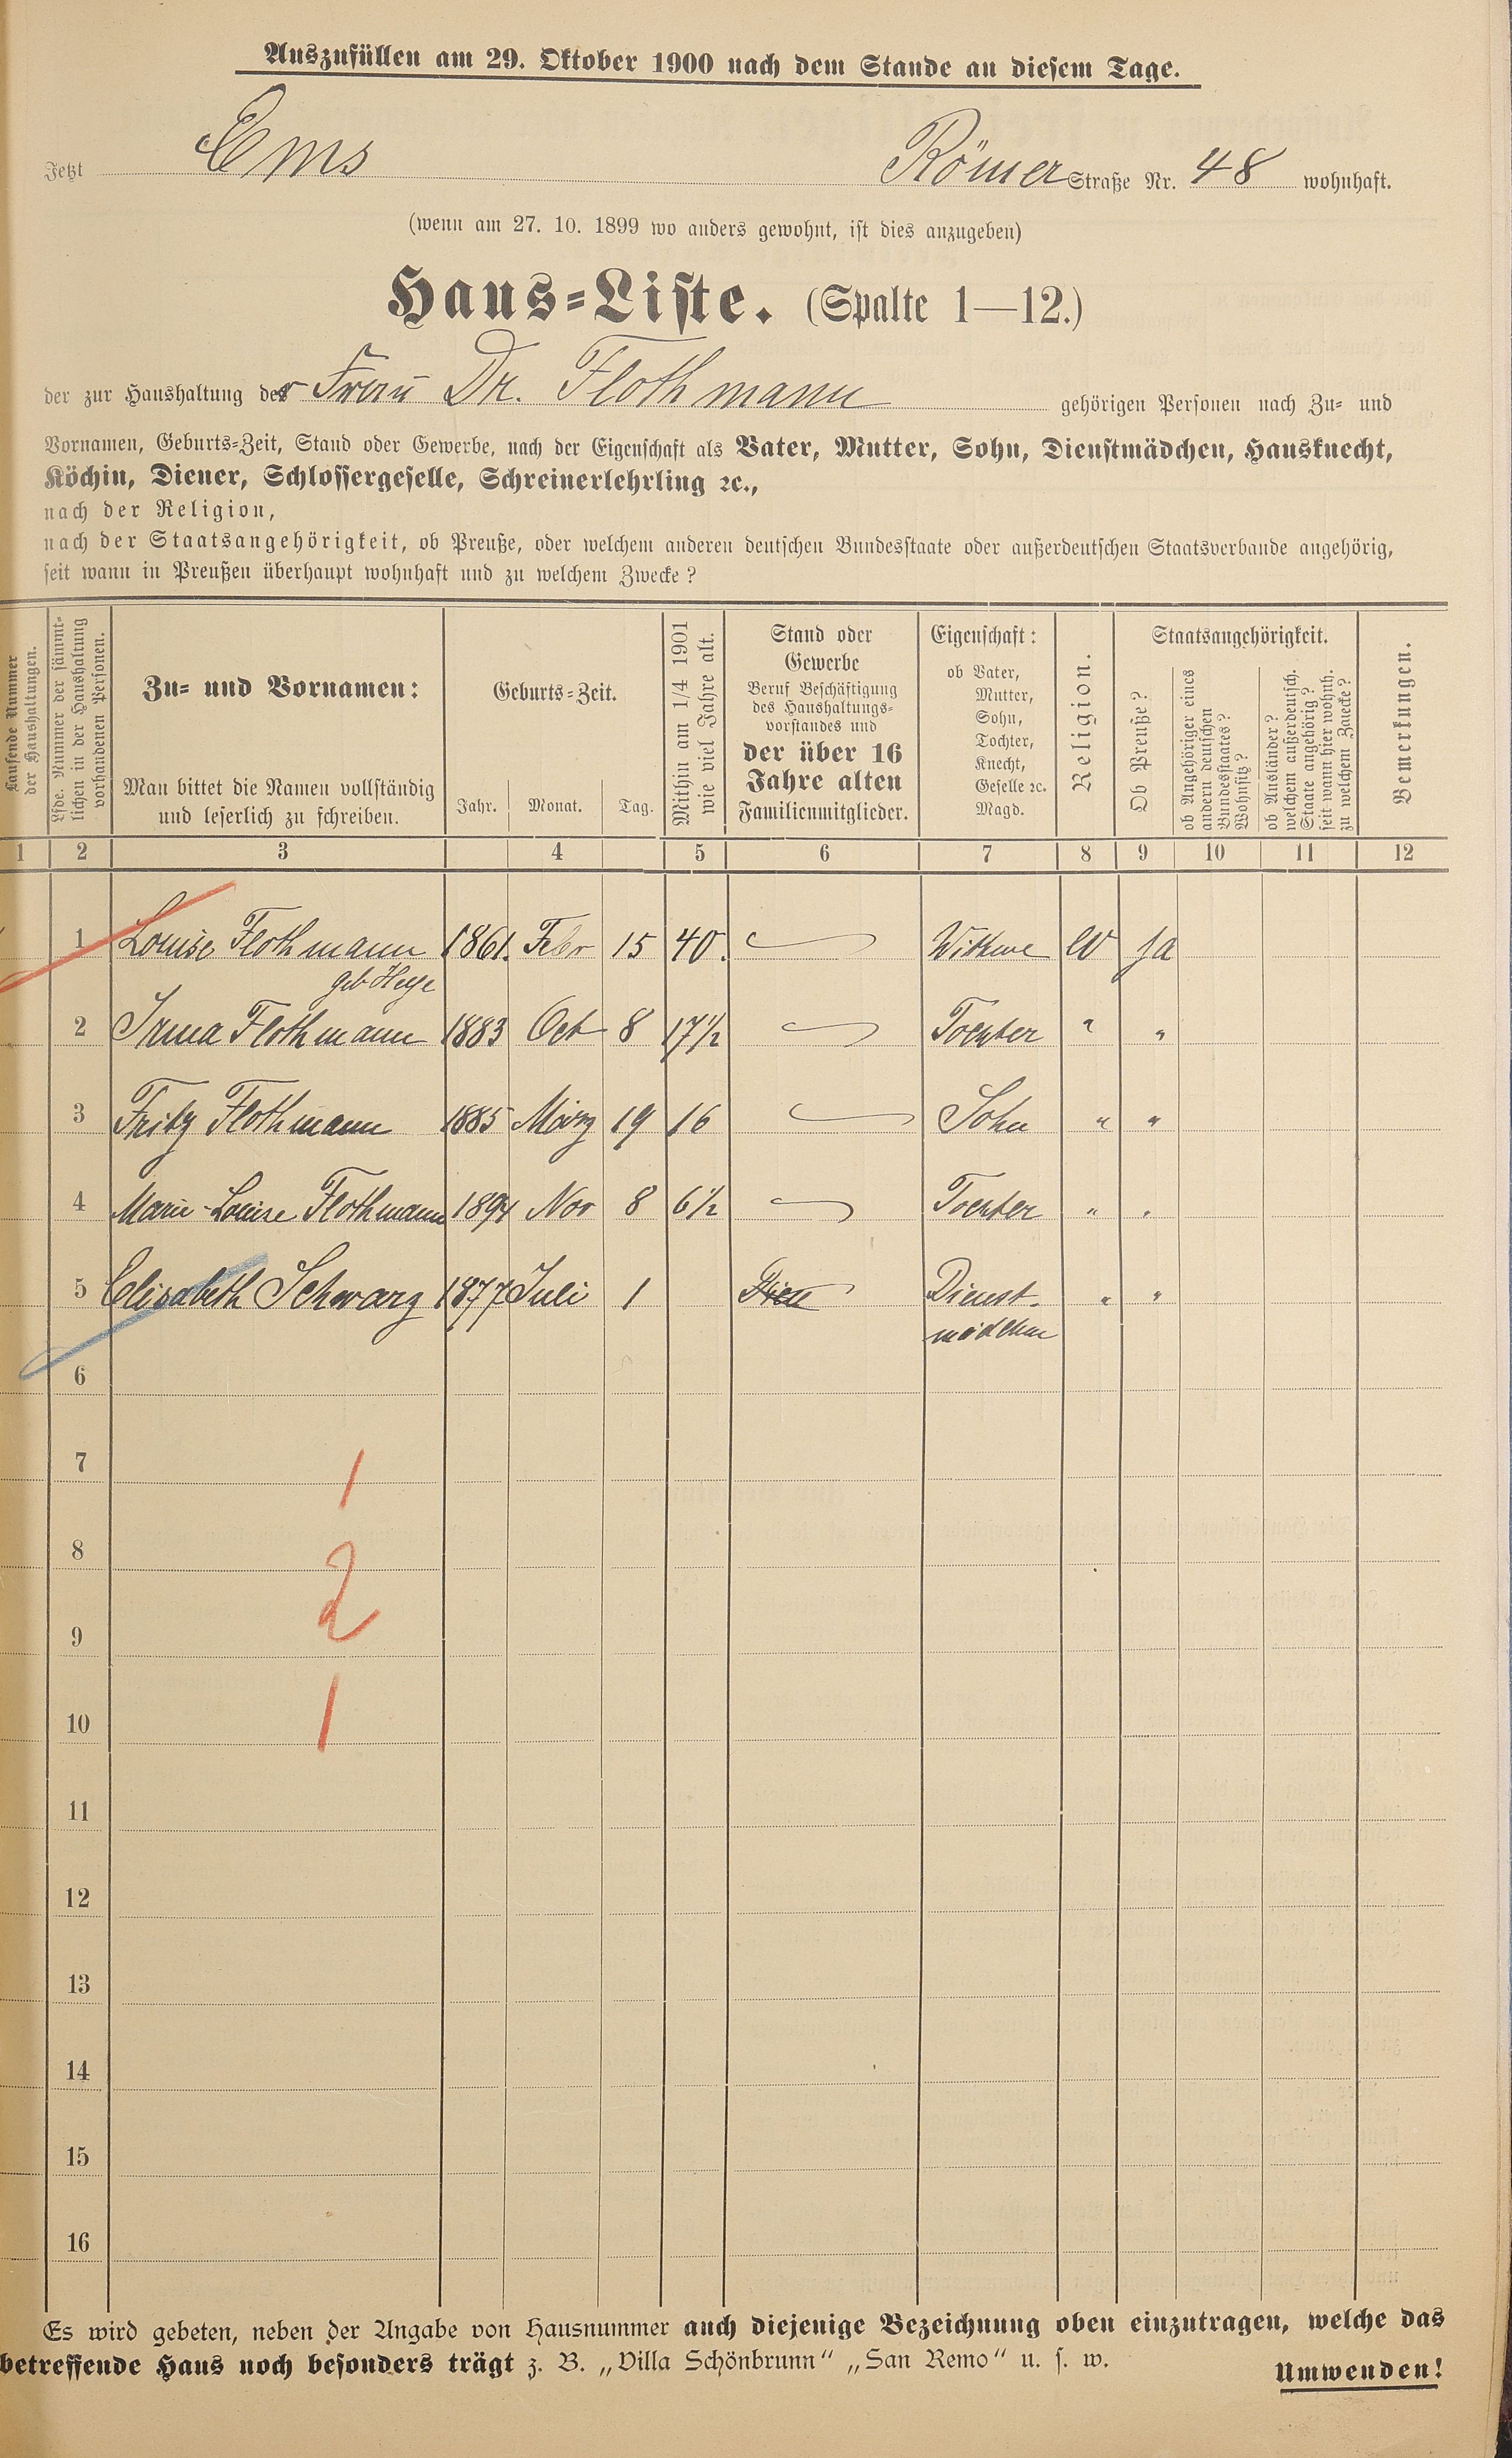 Auszufüllen am 29. Oktober 1900 nach dem Stande an diesem Tage.
Jetzt Ems Römer Straße Nr. 48 wohnhaft.
(wenn am 27. 10. 1899 wo anders gewohnt, ist dies anzugeben)
Haus-Liste. (Spalte 1—12.)
der zur Haushaltung der Frau Dr. Flothmann gehörigen Personen nach Zu- und
Vornamen, Geburts-Zeit, Stand oder Gewerbe, nach der Eigenschaft als Vater, Mutter, Sohn, Dienstmädchen, Hausknecht,
Köchin, Diener, Schlossergeselle, Schreinerlehrling ꝛc.,
nach der Religion,
nach der Staatsangehörigkeit, ob Preuße, oder welchem anderen deutschen Bundesstaate oder außerdeutschen Staatsverbande angehörig,
seit wann in Preußen überhaupt wohnhaft und zu welchem Zwecke?
Laufende Nummer
der Haushaltungen.
Lfde. Nummer der sämmt-
lichen in der Haushaltung
vorhandenen Personen.
Zu- und Vornamen:
Man bittet die Namen vollständig
und leserlich zu schreiben.
Geburts-Zeit.
Jahr. Monat. Tag.
Mithin am 1/4 1901
wie viel Jahre alt.
Stand oder
Gewerbe
Beruf Beschäftigung
des Haushaltungs-
vorstandes und
der über 16
Jahre alten
Familienmitglieder.
Eigenschaft:
ob Vater,
Mutter,
Sohn,
Tochter,
Knecht,
Geselle ꝛc.
Magd.
Religion.
Staatsangehörigkeit.
Ob Preuße?
ob Angehöriger eines
andern deutschen
Bundesstaates?
Wohnsitz?
ob Ausländer?
welchem außerdeutsch.
Staate angehörig?
seit wann hier wohnh.
zu welchem Zwecke?
Bemerkungen.
1 2 3 4 5 6 7 8 9 10 11 12
1 Louise Flothmann 1861. Febr 15 40. Wittwe ev ja
geb Heye
2 Irma Flothmann 1883 Oct 8 17½ Tochter " "
3 Fritz Flothmann 1885 März 19 16 Sohn " "
4 Marie-Louise Flothmann 1894 Nov 8 6½ Tochter " "
5 Elisabeth Schwarz 1877 Juli 1 Dienst- " "
mädchen
6
7
1
8
2
9
10
1
11
12
13
14
15
16
Es wird gebeten, neben der Angabe von Hausnummer auch diejenige Bezeichnung oben einzutragen, welche das
betreffende Haus noch besonders trägt z. B. „Villa Schönbrunn“ „San Remo“ u. s. w.
Umwenden!